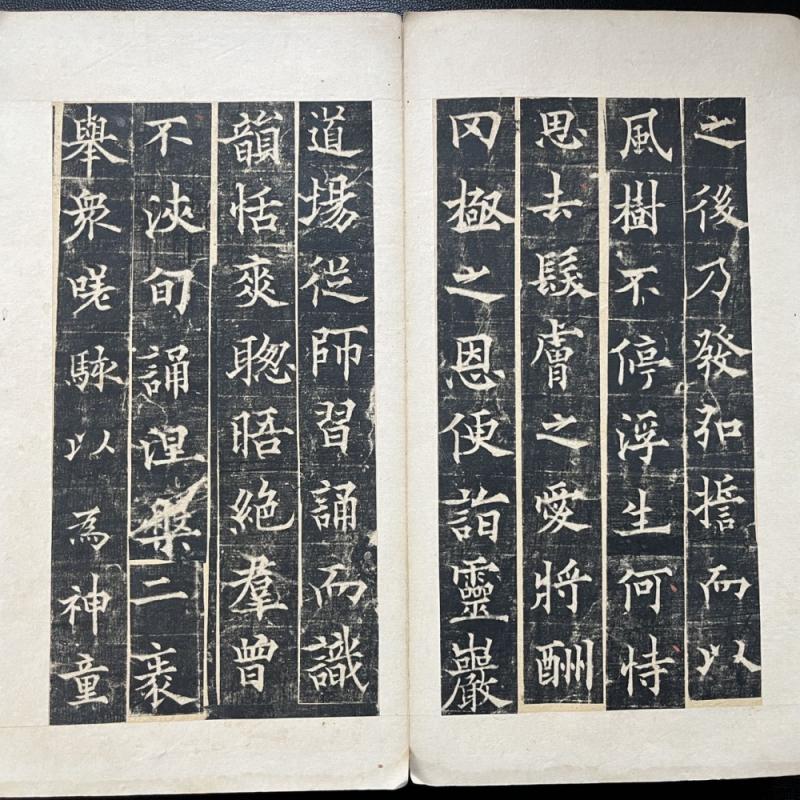 之後乃發弘擔而以
風樹不停浮生何恃
思去髮膚之愛將酬
罔極之恩便詣靈巖
道場從師習誦而識
韻恬爽聰晤絕羣曾
不浹旬誦涅槃二袠
舉衆嗟駭以為神童